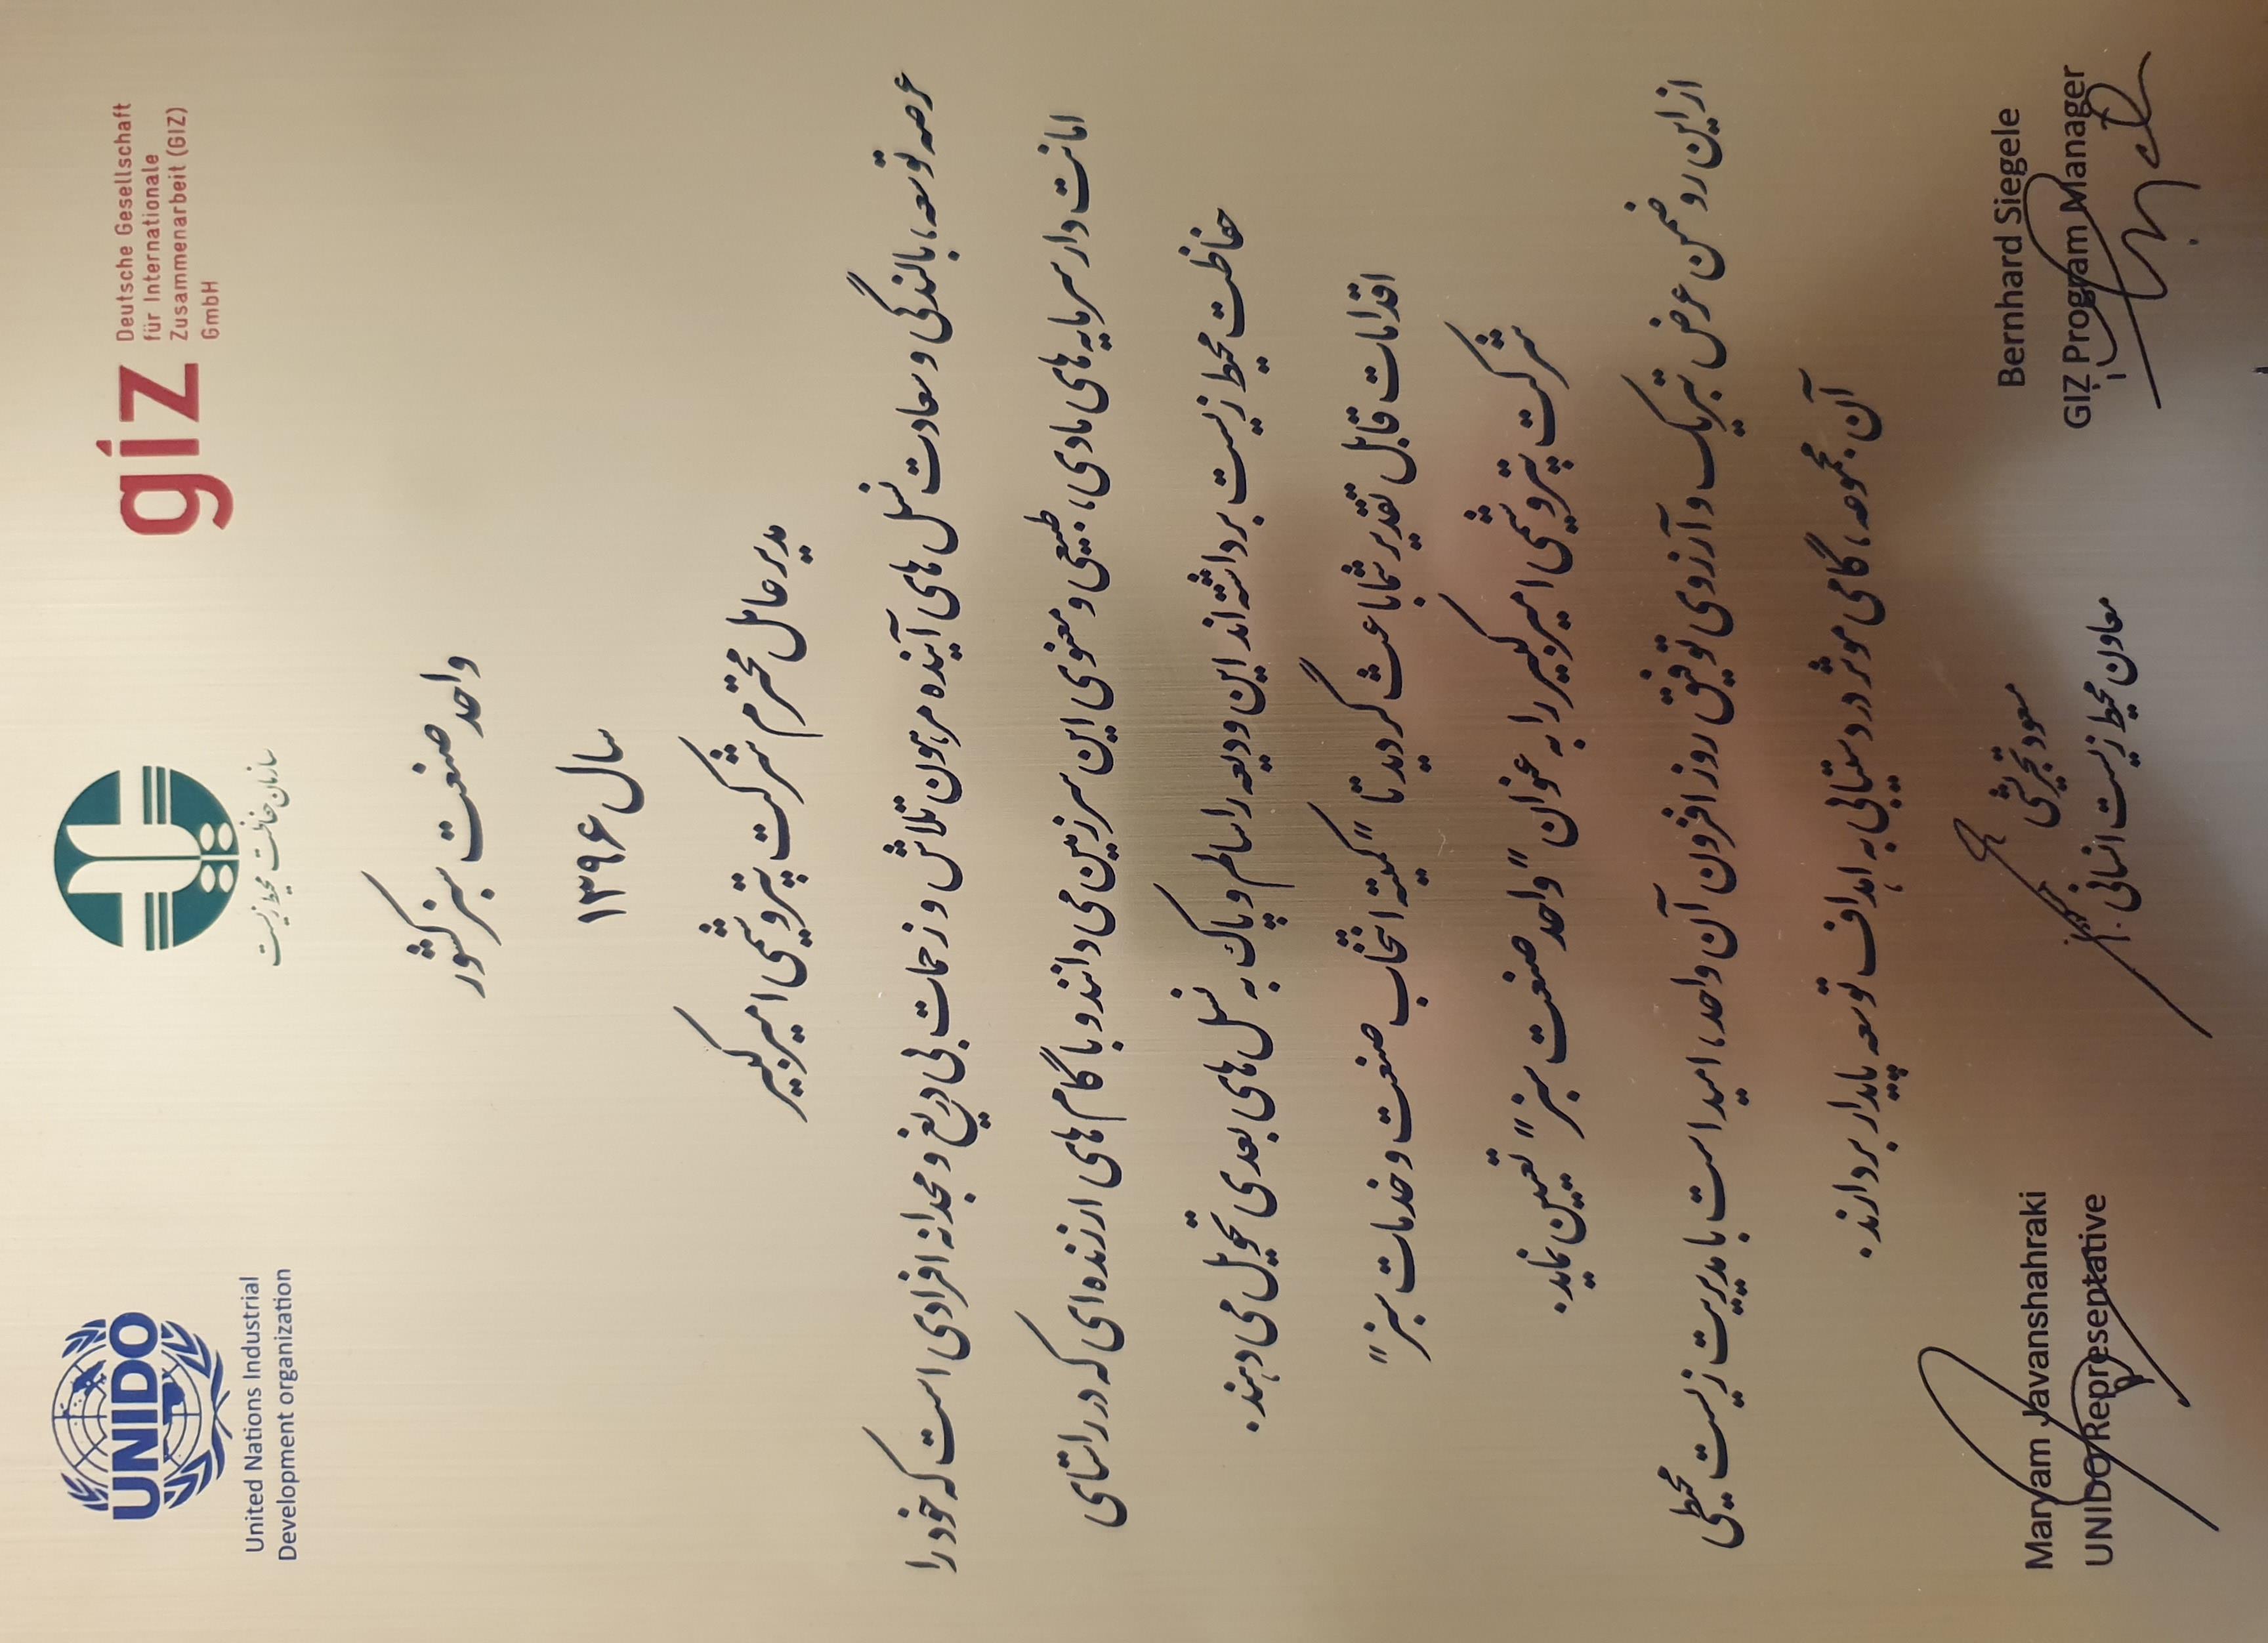 UNIDO
United Nations Industrial
Development organization
سازمان حفاظت محیط زیست
giz
Deutsche Gesellschaft
für Internationale
Zusammenarbeit (GIZ)
GmbH
واحد صنعت سبز کشور
سال ۱۳۹۶
مدیر عامل محترم شرکت پتروشیمی امیرکبیر
عرصه توسعه، بالندگی و سعادت نسل های آینده مرهون تلاش و زحمات بی دریغ و مجدانه افرادی است که خود را
امانت دار سرمایه های مادی، طبیعی و معنوی این سرزمین می دانند و با گام های ارزنده ای که در راستای
حفاظت محیط زیست برداشته اند این ودیعه را سالم و پاک به نسل های بعدی تحویل می دهند.
اقدامات قابل تقدیر شما باعث گردید تا "کمیته انتخاب صنعت و خدمات سبز"
شرکت پتروشیمی امیرکبیر را به عنوان "واحد صنعت سبز" تعیین نماید.
از این رو ضمن عرض تبریک و آرزوی توفیق روز افزون آن واحد، امید است با مدیریت زیست محیطی
آن مجموعه، گامی موثر در دستیابی به اهداف توسعه پایدار بردارند.
Maryam Javanshahraki
UNIDO Representative
مسعود تجریشی
معاون محیط زیست انسانی
Bernhard Siegele
GIZ Program Manager